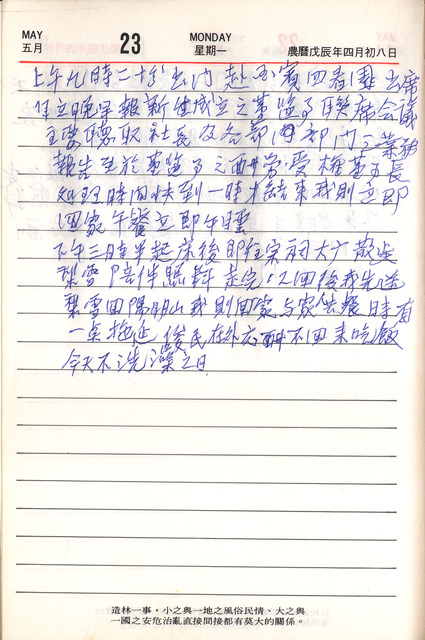 MAY
五月
23
MONDAY
星期一
農曆戊辰年四月初八日
上午九時二十分出門赴國賓四香園出席
自立晚早報新世成立之董監事聯席會議
主要聽取社長及各部門部門之業務
報告至於董監事之酬勞受權董長
處理時間快到一時才結束我則立即
回家午餐立即午睡
下午三時半起床後即往宋祠大廣散步
梨雪陪伴 走完12回後我先送
梨雪回陽明山我則回家与家共餐時有
一點拖延 俊民在外應酬不回來吃飯
今天不洗澡之日
造林一事，小之與一地之風俗民情、大之與
一國之安危治亂直接間接都有莫大的關係。